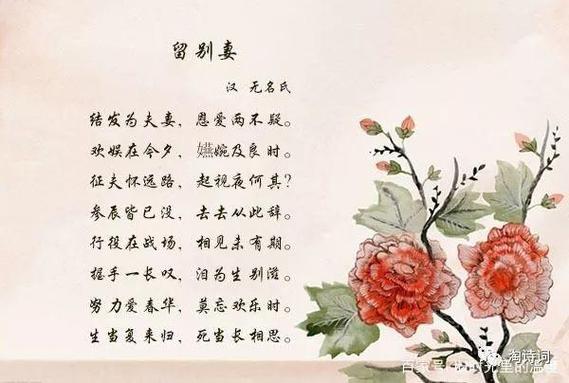 留别妻
汉 无名氏
结发为夫妻，恩爱两不疑。
欢娱在今夕，嬿婉及良时。
征夫怀远路，起视夜何其？
参辰皆已没，去去从此辞。
行役在战场，相见未有期。
握手一长叹，泪为生别滋。
努力爱春华，莫忘欢乐时。
生当复来归，死当长相思。
淘诗词
百家号/时光里的温度